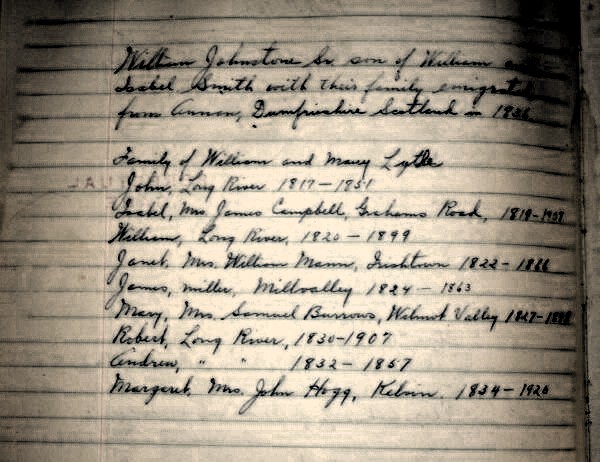 William Johnstone Sr. son of William and
Isabel Smith with their family emigrated
from Annan, Dumfriesshire Scotland in
Family of William and Mary Lytle
John, Long River 1817-1851
Isabel, Mrs James Campbell, Grahams Road, 1819-
William, Long River, 1820-1899
Janet, Mrs. William Mann, Irishtown 1822-
James, miller, Millvalley 1824-1863
Mary, Mrs. Samuel Burrows, Wilmot Valley 1827-
Robert, Long River, 1830-1907
Andrew, " " 1832-1857
Margaret, Mrs. John Hogg, Kelvin. 1834-1920